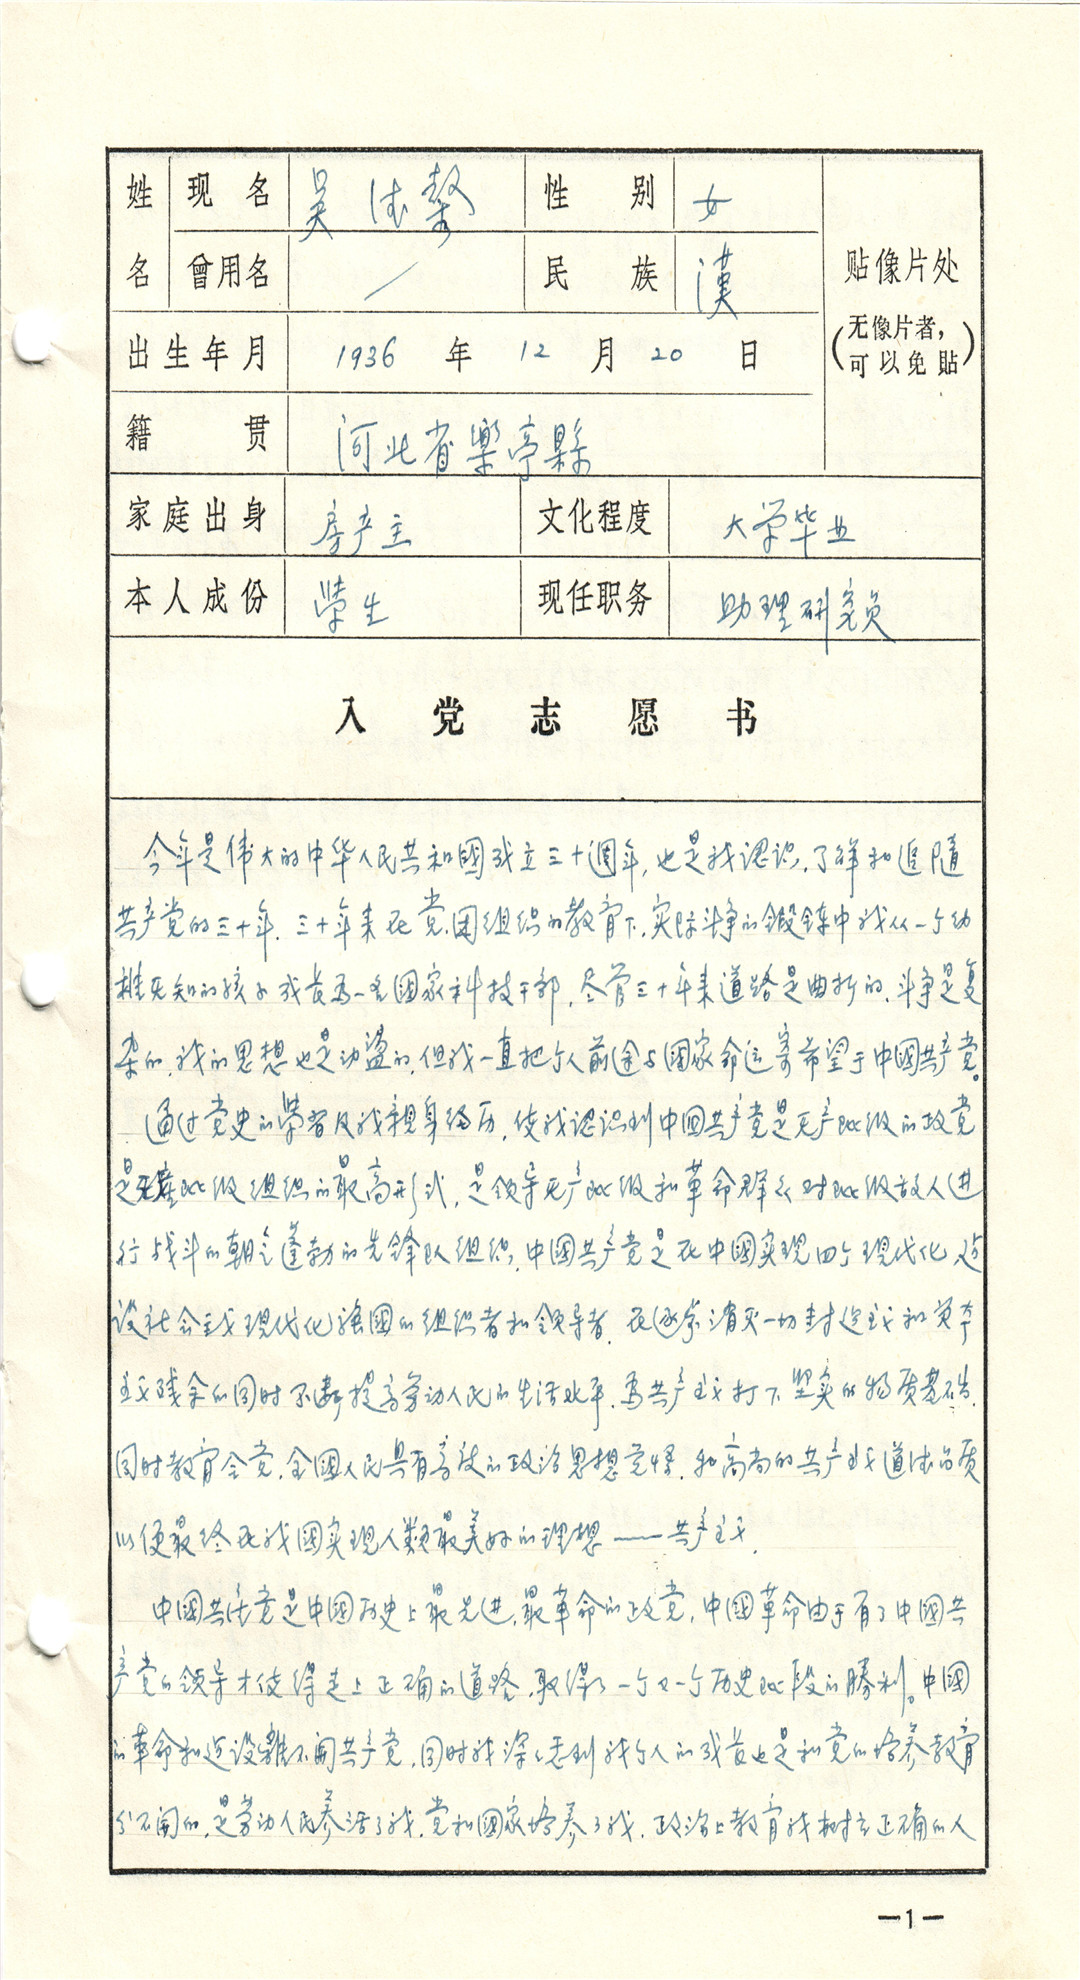 姓名 现名 吴 性别 女
曾用名 / 民族 漢
贴像片处
(无像片者,
可以免貼)
出生年月 1936 年 12 月 20 日
籍贯 河北省樂亭縣
家庭出身 房产主 文化程度 大学毕业
本人成份 學生 现任职务 助理研究员
入党志愿书
今年是伟大的中华人民共和國成立三十週年,也是我認识,了解和追隨
共产党的三十年.三十年来在党,团组织的教育下,实际斗争的鍛鍊中我从一个幼
稚无知的孩子成長為一名國家科技干部,尽管三十年来道路是曲折的,斗争是复
杂的,我的思想也是动盪的,但我一直把个人前途与國家命运寄希望于中國共产党。
通过党史的學習及我親身经历,使我認识到中國共产党是无产阶级的政党
是无產阶级组织的最高形式,是领导无产阶级和革命群众对阶级敌人进
行战斗的朝气蓬勃的先锋队组织,中國共产党是在中國实现四个现代化,建
设社会主义现代化强國的组织者和领导者.在逐步消灭一切封建主义和资本
主义残余的同时不断提高劳动人民的生活水平,為共产主义打下坚实的物质基础.
同时教育全党,全國人民具有高度的政治思想觉悟,和高尚的共产主义道德品质
以便最终在我國实现人類最美好的理想——共产主义.
中國共产党是中國历史上最先进,最革命的政党,中國革命由于有了中國共
产党的领导才使得走上正确的道路,取得了一个又一个历史阶段的勝利。中國
的革命和建设離不開共产党,同时我深深感到我个人的成長也是和党的培养教育
分不開的,是劳动人民养活了我,党和國家培养了我.政治上教育我树立正确的人
—1—